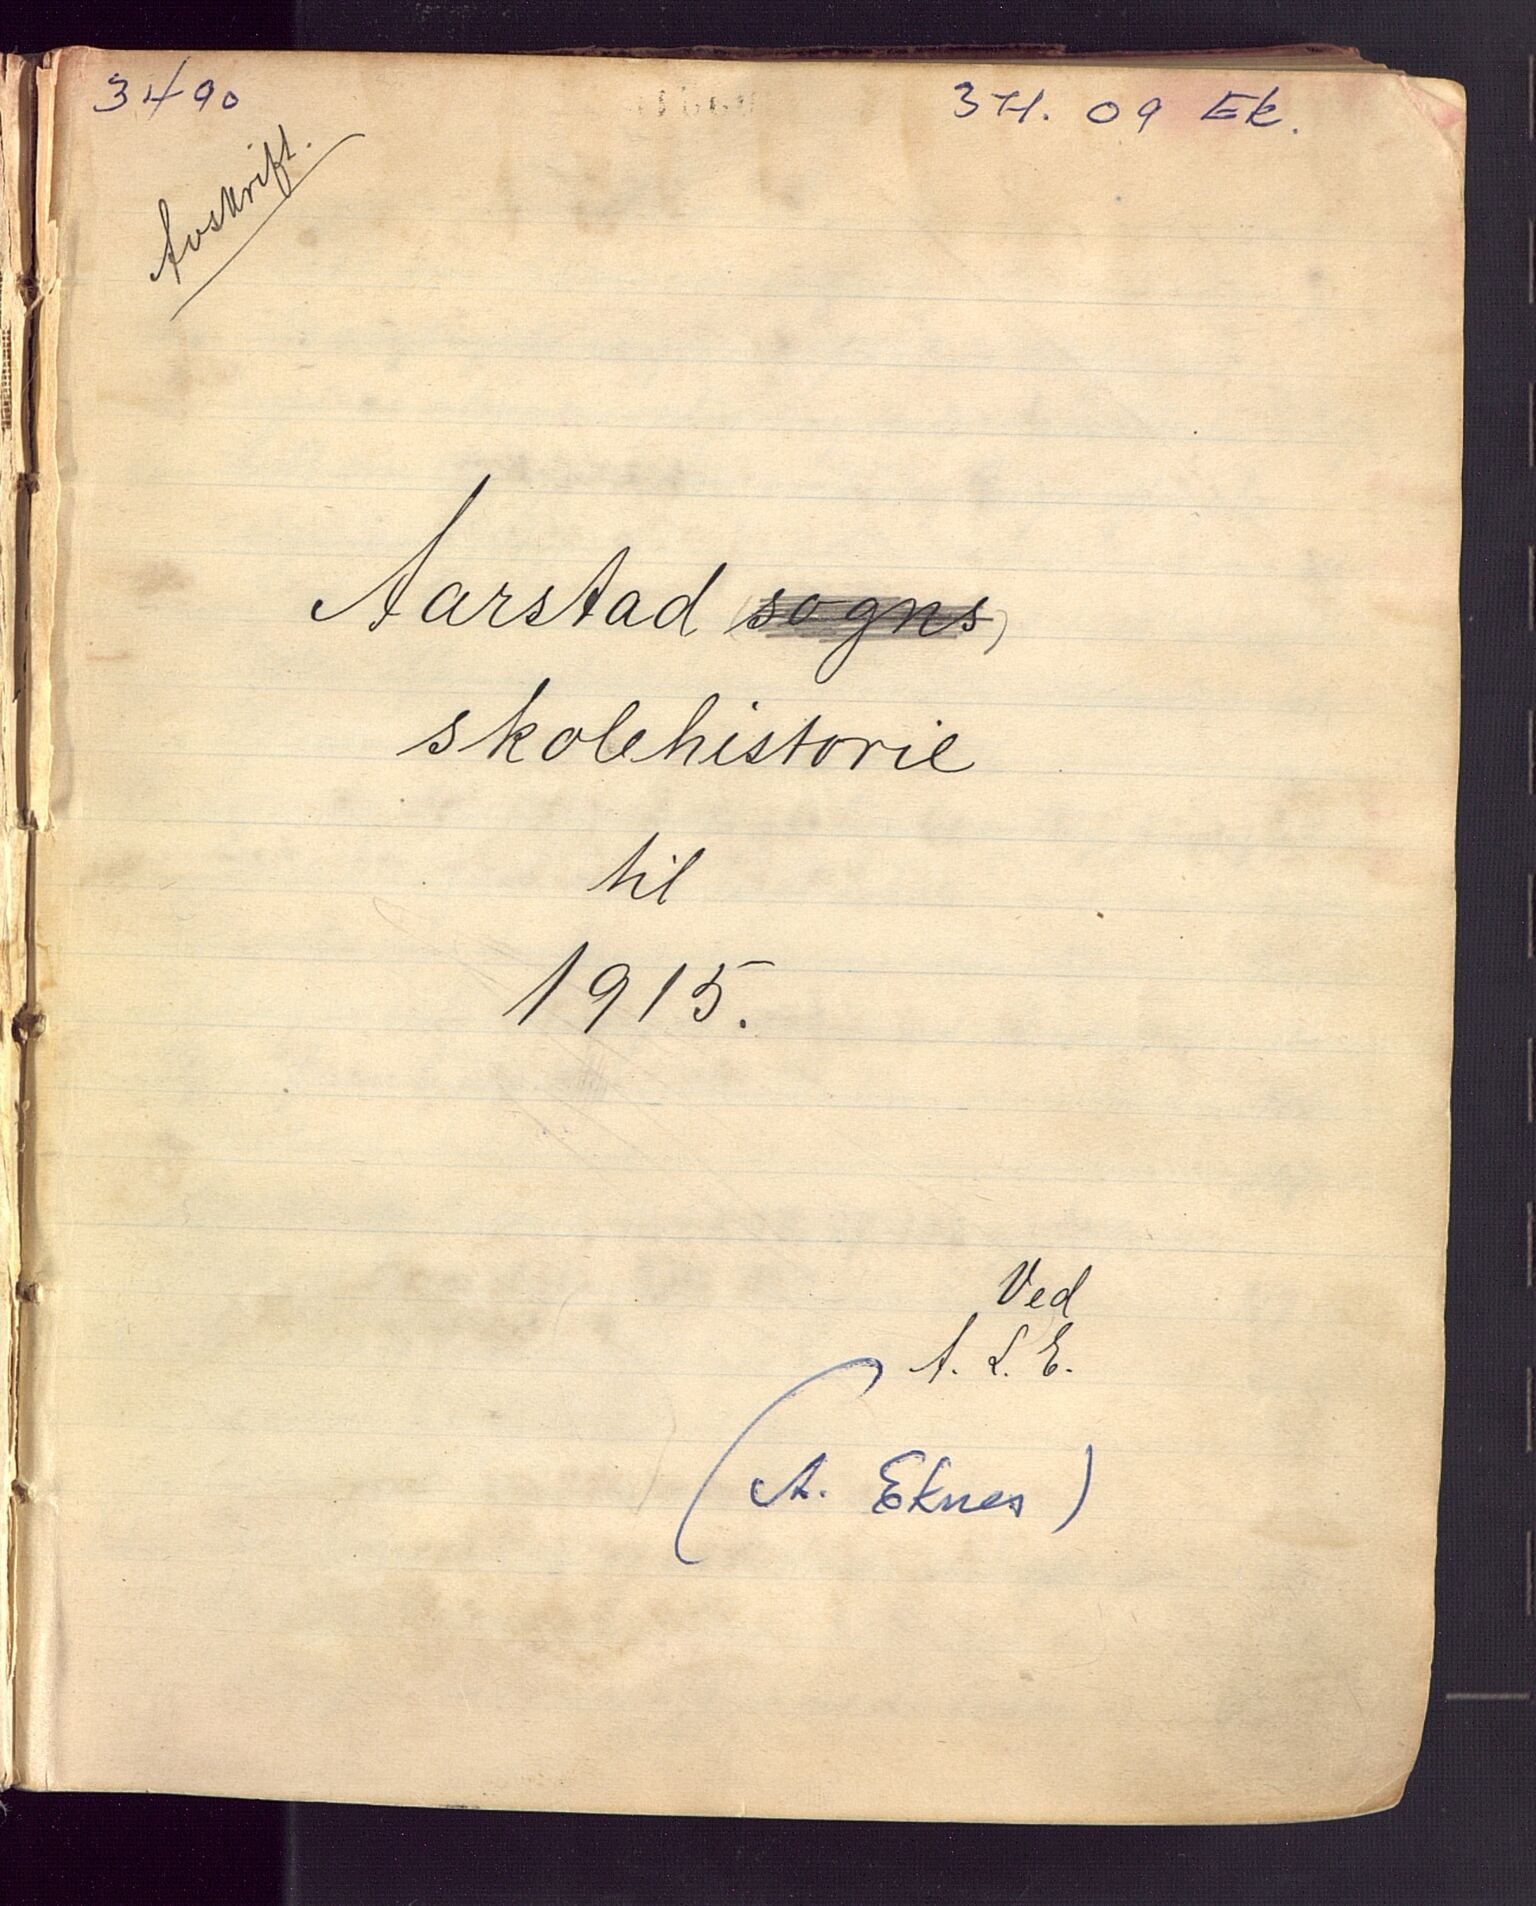 3490
37H. 09 Ek.
Avskrift.
Aarstad (sogns)
skolehistorie
til
1915.
Ved
A. L. E.
(A. Eknes)